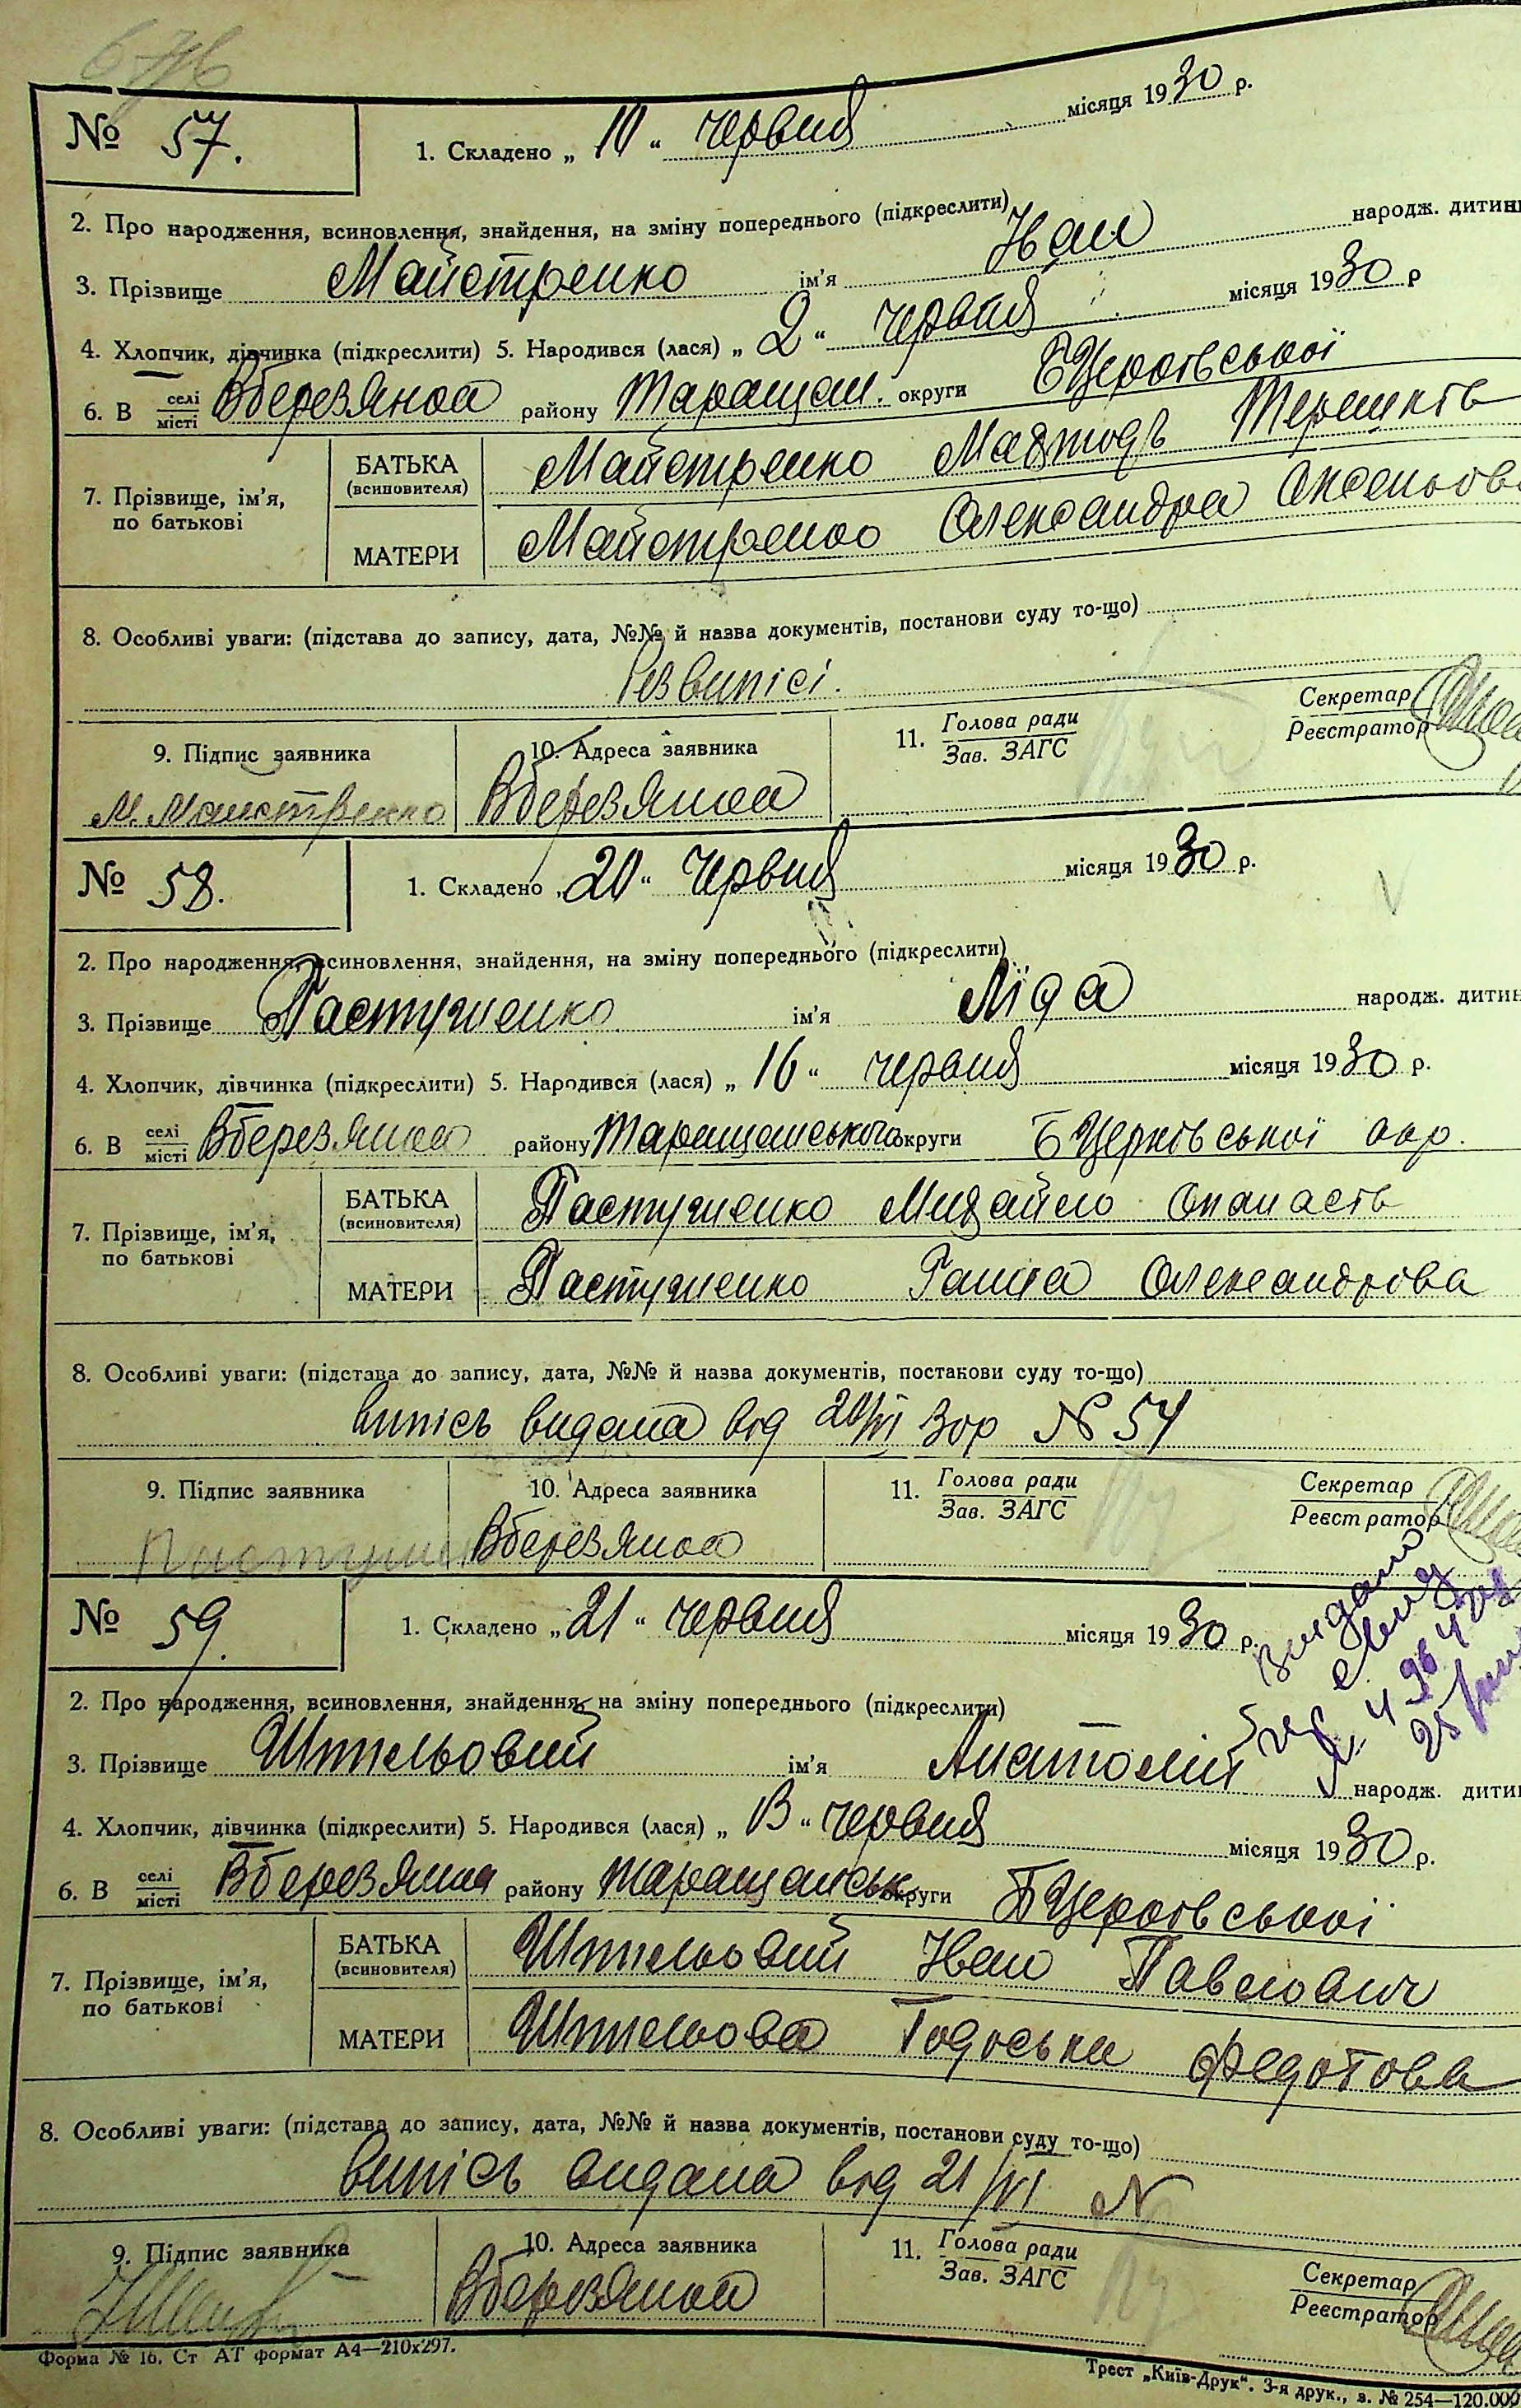 № 57. 1. Складено „ 10 “ червня місяця 1930 р.
2. Про народження, всиновлення, знайдення, на зміну попереднього (підкреслити)
3. Прізвище Майстренко ім'я Иван народж. дитин
4. Хлопчик, дівчинка (підкреслити) 5. Народився (лася) „ 2 “ червня місяця 1930 р
6. В селі місті Вберезянка району Таращан. округи БЦерківської
7. Прізвище, ім'я, по батькові
БАТЬКА (всиновителя) Майстренко Терешків
МАТЕРИ Майстренко Олександра Оксеньтова
8. Особливі уваги: (підстава до запису, дата, №№ й назва документів, постанови суду то-що)
без виписі.
9. Підпис заявника 10. Адреса заявника 11. Голова ради Зав. ЗАГС Секретар Реєстратор
М. Майстренко Вберезянка
№ 58. 1. Складено „ 20 “ червня місяця 1930 р.
2. Про народження, всиновлення, знайдення, на зміну попереднього (підкреслити)
3. Прізвище Пастушенко ім'я Ліда народж. дитин
4. Хлопчик, дівчинка (підкреслити) 5. Народився (лася) „ 16 “ червня місяця 1930 р.
6. В селі місті Вберезянка району Таращанського округи БЦерківської окр.
7. Прізвище, ім'я, по батькові
БАТЬКА (всиновителя) Пастушенко Михайло Опанасів
МАТЕРИ Пастушенко Ганна Олександрова
8. Особливі уваги: (підстава до запису, дата, №№ й назва документів, постанови суду то-що)
випісь видана від 20/VI 30р № 57
9. Підпис заявника 10. Адреса заявника 11. Голова ради Зав. ЗАГС Секретар Реєстратор
Вберезянка
№ 59. 1. Складено „ 21 “ червня місяця 1930 р.
2. Про народження, всиновлення, знайдення, на зміну попереднього (підкреслити)
3. Прізвище Штильовий ім'я Анатолій народж. дити
4. Хлопчик, дівчинка (підкреслити) 5. Народився (лася) „ 13 “ червня місяця 1930 р.
6. В селі місті Вберезянка району Таращанськ округи БЦерківської
7. Прізвище, ім'я, по батькові
БАТЬКА (всиновителя) Штильовий Иван Павлович
МАТЕРИ Штильова Тодоська Федотова
8. Особливі уваги: (підстава до запису, дата, №№ й назва документів, постанови суду то-що)
випісь видана від 21/VI №
9. Підпис заявника 10. Адреса заявника 11. Голова ради Зав. ЗАГС Секретар Реєстратор
Вберезянка
Форма № 16. Ст АТ формат А4—210х297.
Трест „Київ-Друк“. 3-я друк., з. № 254—120.000